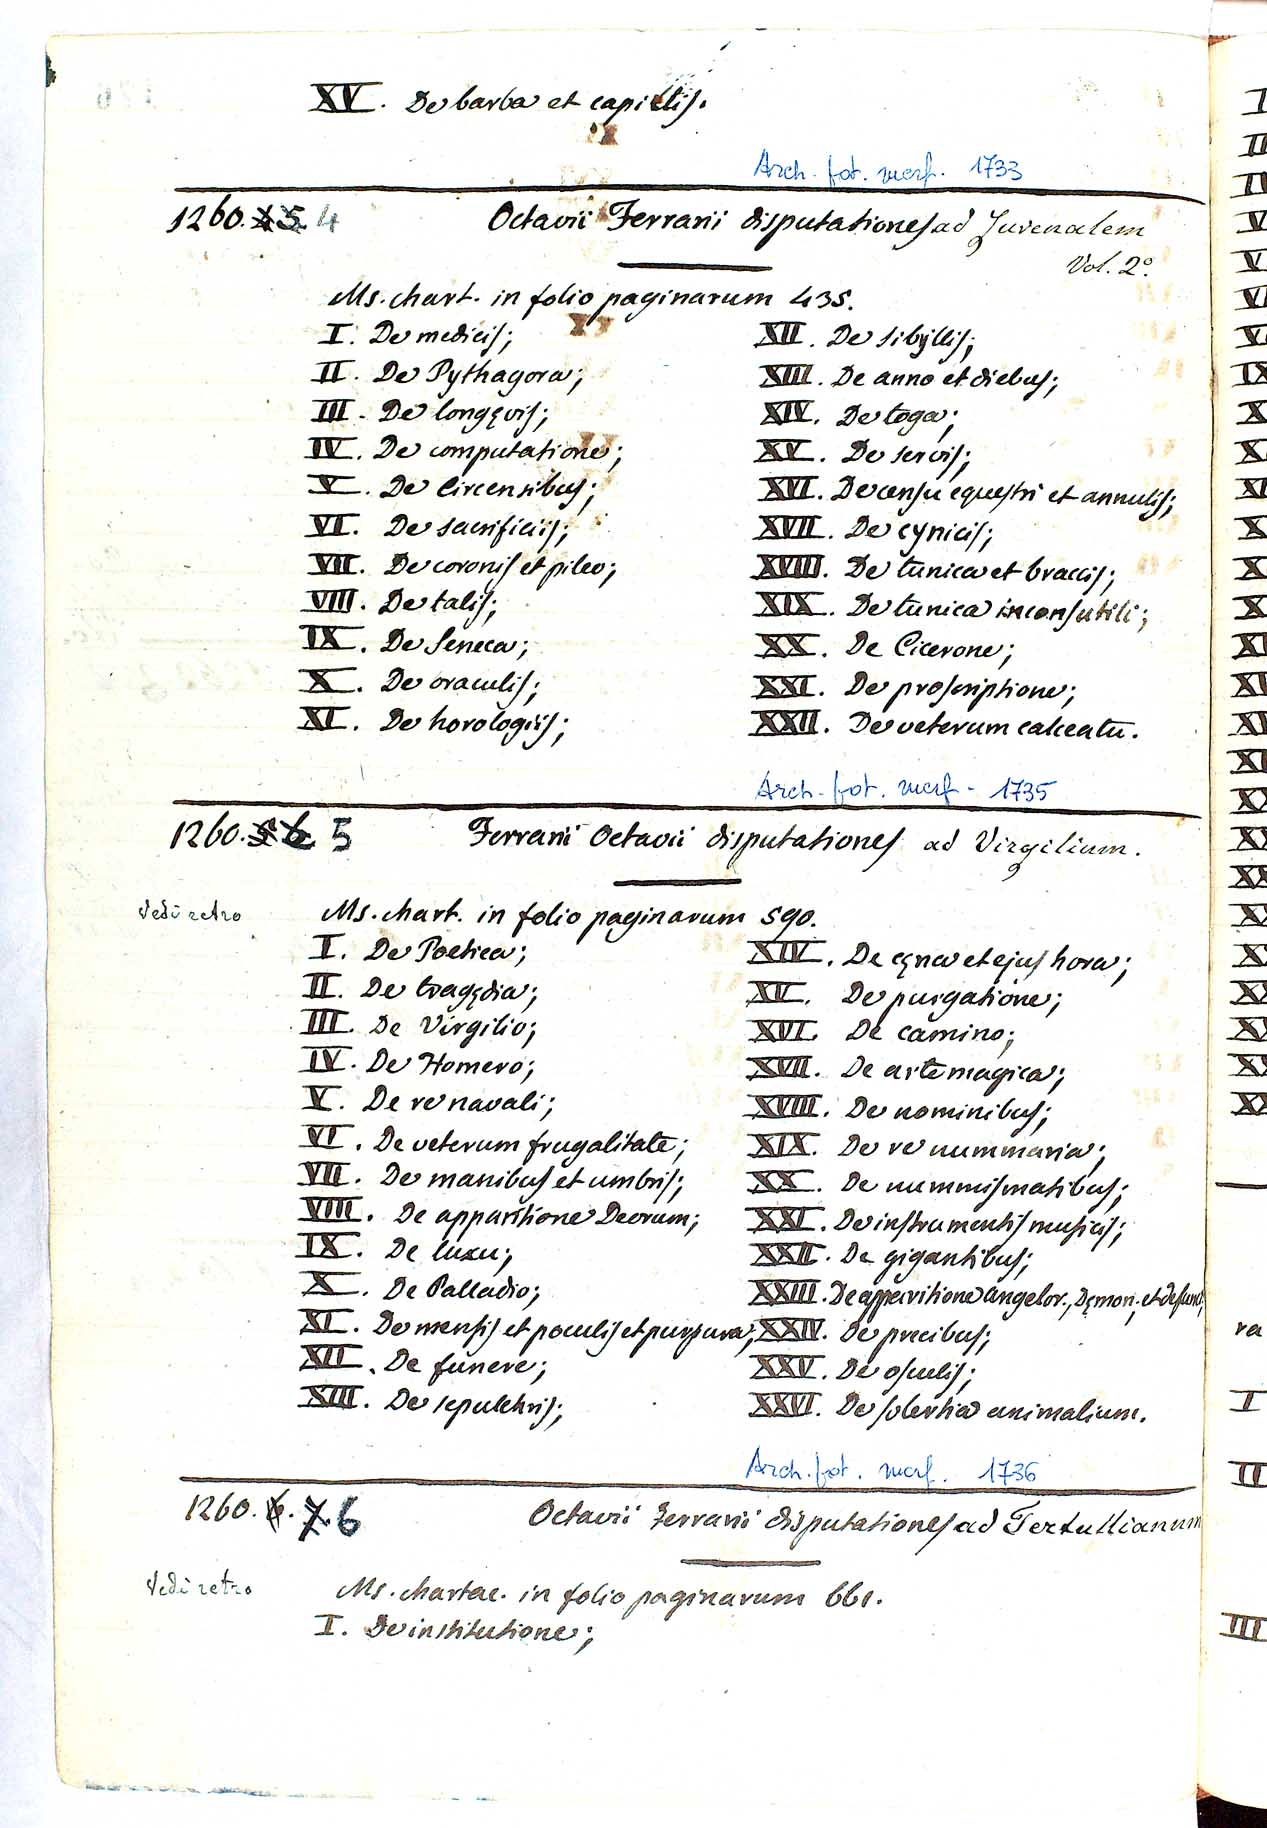 XV. De barba et capillis.
Arch. fot. marf. 1733
1260. 4 5. 4 Octavii Ferrarii disputationes ad Juvenalem
Vol. 2º.
Ms. chart. in folio paginarum 435.
I. De medicis;
II. De Pythagora;
III. De longęvis;
IV. De computatione;
V. De Circensibus;
VI. De sacrificiis;
VII. De coronis et pileo;
VIII. De talis;
IX. De Seneca;
X. De oraculis;
XI. De horologiis;
XII. De sibyllis;
XIII. De anno et diebus;
XIV. De toga;
XV. De servis;
XVI. De censu equestri et annulis;
XVII. De cynicis;
XVIII. De tunica et braccis;
XIX. De tunica inconsutili;
XX. De Cicerone;
XXI. De proscriptione;
XXII. De veterum calceatu.
Arch. fot. marf. 1735
1260. 5 6. 5 Ferrarii Octavii disputationes ad Virgilium.
Vedi retro
Ms. chart. in folio paginarum 590.
I. De Poetica;
II. De tragędia;
III. De Virgilio;
IV. De Homero;
V. De re navali;
VI. De veterum frugalitate;
VII. De manibus et umbris;
VIII. De apparitione Deorum;
IX. De luxu;
X. De Palladio;
XI. De mensis et poculis et purpura;
XII. De funere;
XIII. De sepulchris;
XIV. De cęna et ejus hora;
XV. De purgatione;
XVI. De camino;
XVII. De arte magica;
XVIII. De nominibus;
XIX. De re nummaria;
XX. De nummismatibus;
XXI. De instrumentis musicis;
XXII. De gigantibus;
XXIII. De apparitione angelor., Dęmon. et defunc.;
XXIV. De precibus;
XXV. De osculis;
XXVI. De solertia animalium.
Arch. fot. marf. 1736
1260. 6. 7. 6 Octavii Ferrarii disputationes ad Tertullianum
Vedi retro
Ms. chartac. in folio paginarum 661.
I. De institutione;